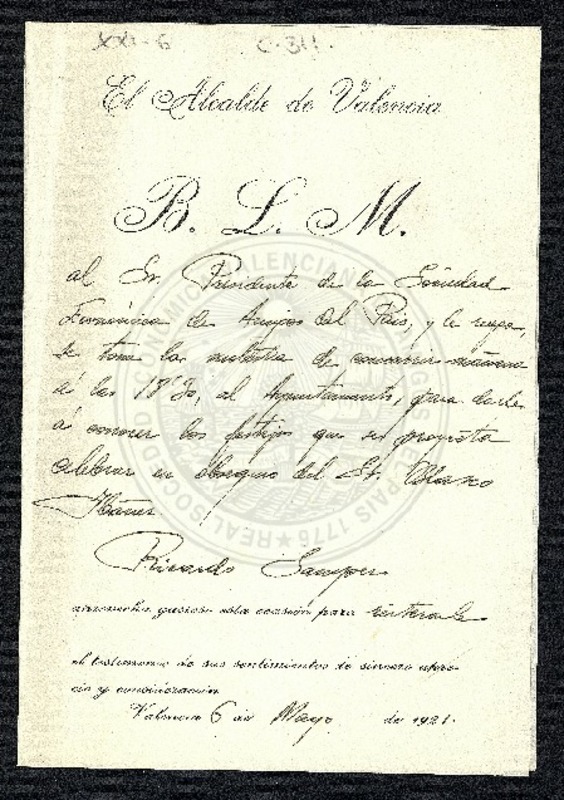 XXI-6 C-311.
El Alcalde de Valencia
B. L. M.
al Sr. Presidente de la Sociedad
Económica de Amigos del Pais, y le ruega,
se tome la molestia de concurrir mañana
á las 18'30, al Ayuntamiento, para darle
á conocer los festejos que se proyecta
celebrar en obsequio del Sr. Blasco
Ibáñez
Ricardo Samper
aprovecha gustoso esta ocasión para reiterarle
el testimonio de sus sentimientos de sincero apre-
cio y consideración
Valencia 6 de Mayo de 1921.
REAL SOCIEDAD ECONOMICA VALENCIANA DE AMIGOS DEL PAIS 1776